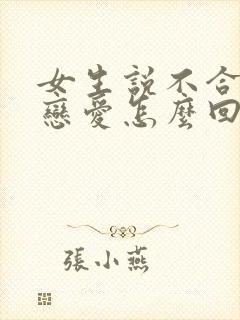 女生說不合
戀愛怎麼回
張小燕